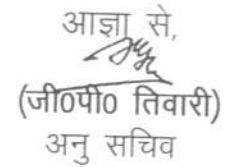 आज्ञा से,
(जी0पी0 तिवारी)
अनु सचिव